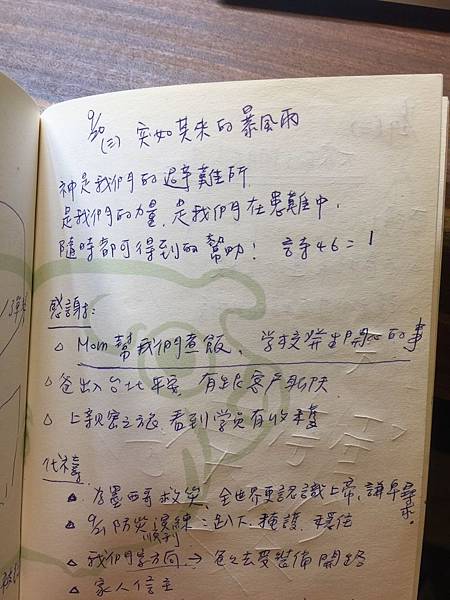 9/20
(三) 突如其來的暴風雨
神是我們的避難所
是我們的力量,是我們在患難中,
隨時都可得到的幫助! 詩46=1
感謝:
△ Mom幫我們煮飯、學校發生開心的事
△ 爸出入台北平安,有跟客戶聯絡
△ 上親密之旅,看到学员有收穫
代禱
△ 為墨西哥救災,全世界更認識上帝,謙卑尋求.
△ 9/21防災演練:趴下、掩護、穩住
順利
△ 我們家方向→爸爸去受裝備開路
△ 家人信主